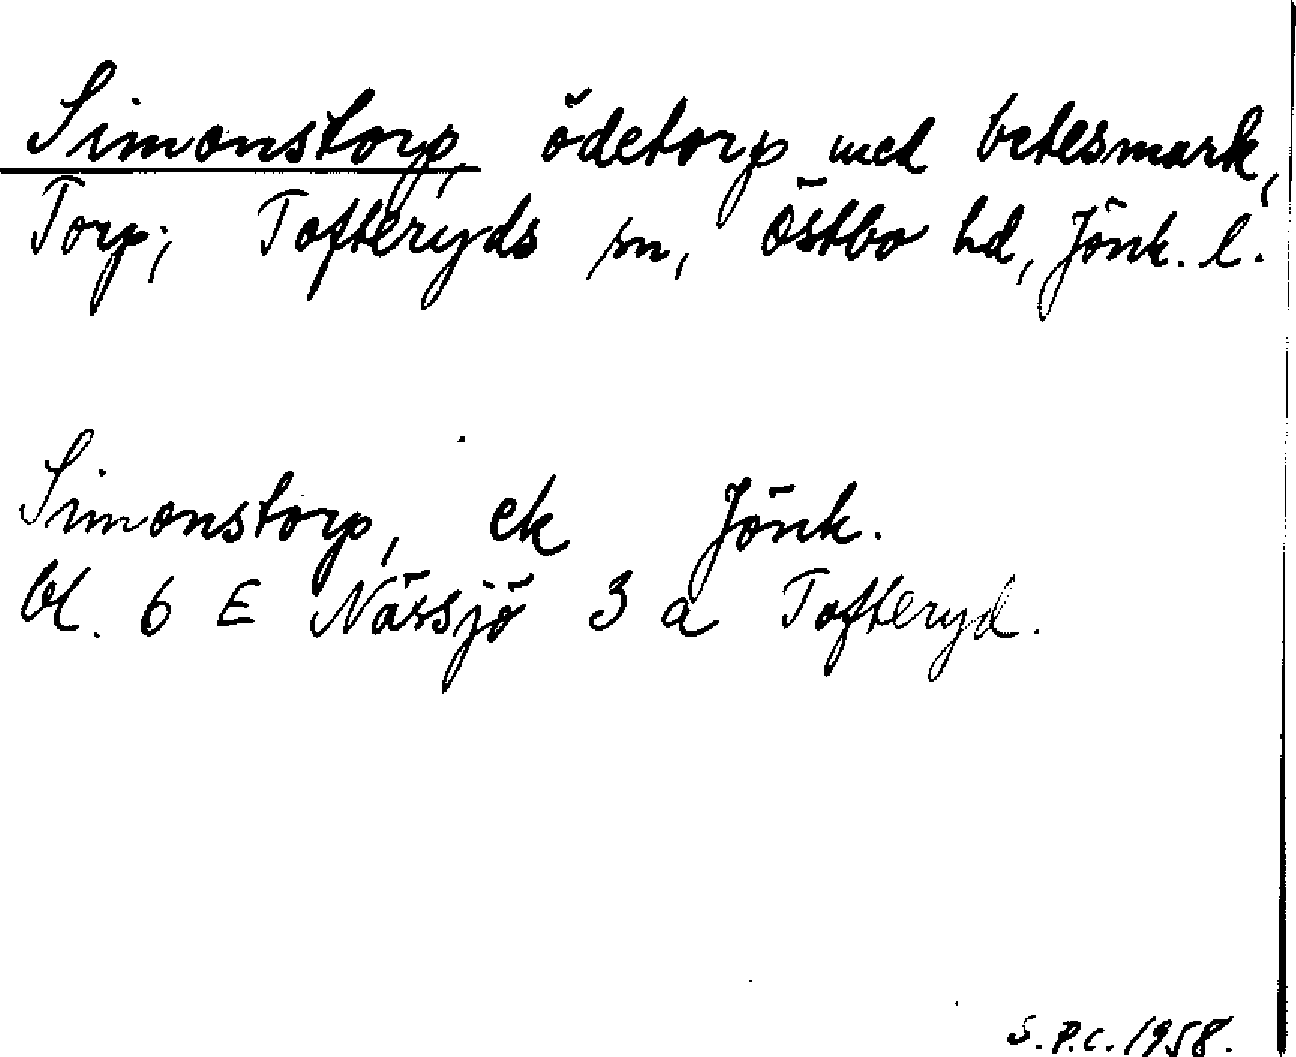 Simonstorp, ödetorp med betesmark,
Torp; Tofteryds sn, Östbo hd, Jönk. l.
Simonstorp, ek Jönk.
bl. 6 E Nässjö 3 a Tofteryd.
S.P.C. 1958.